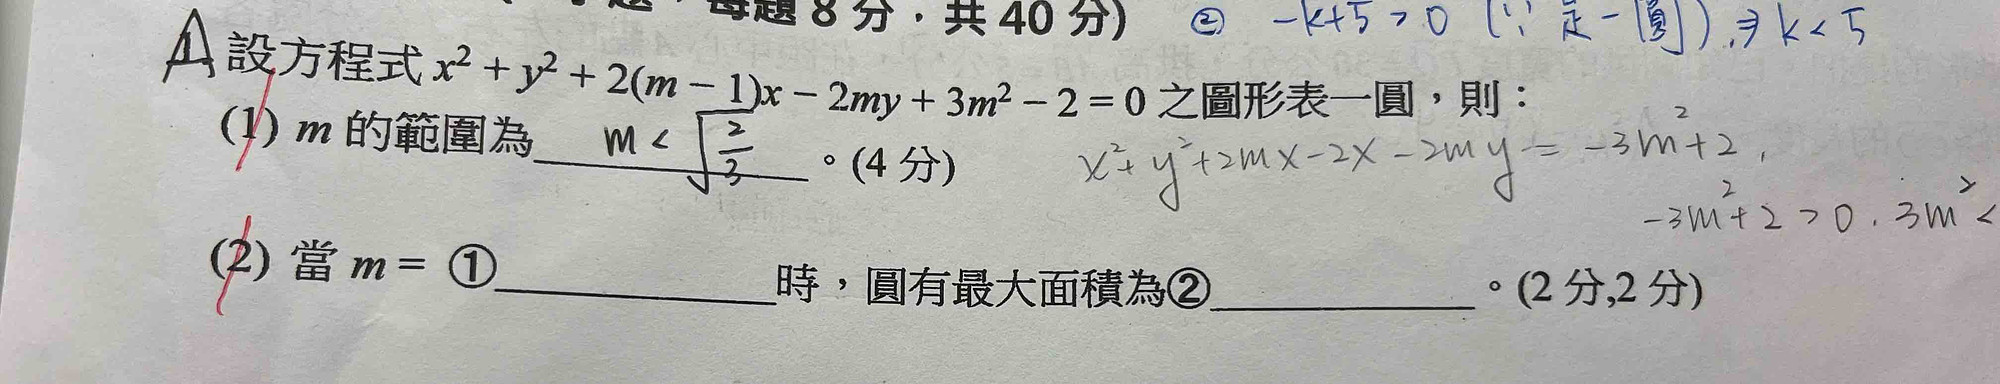 每題 8 分，共 40 分) ② -k+5 > 0 (∵ 是一圓) ⇒ k < 5
1. 設方程式 x² + y² + 2(m − 1)x − 2my + 3m² − 2 = 0 之圖形表一圓，則：
(1) m 的範圍為 m < √(2/3) 。(4 分)
x²+y²+2mx-2x-2my = -3m²+2,
-3m²+2 > 0 . 3m² <
(2) 當 m = ① 時，圓有最大面積為② 。(2 分,2 分)